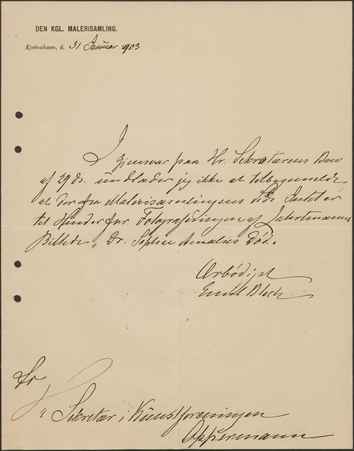 DEN KGL. MALERISAMLING.
Kjøbenhavn, d. 31 Januar 1903
I Gjensvar paa Hr. Sekretærens Brev
af 29 ds. undlader jeg ikke at tilbagemelde
at der fra Malerisamlingens Side Intet er
til Hinder for Fotograferingen af
Billede, Dr. Sophie Amalies Død.
Ærbødigst
Emil Bloch
Hr
Sekretær i Kunstforeningen
Oppermann